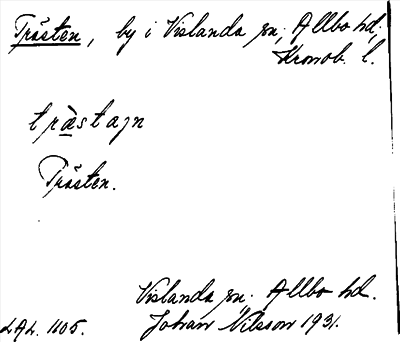 Trästen, by i Vislanda sn, Allbo hd,
Kronob. l.
tr̀æstajn
Trästen.
Vislanda sn. Allbo hd.
LAL. 1105. Johan Nilsson 1931.